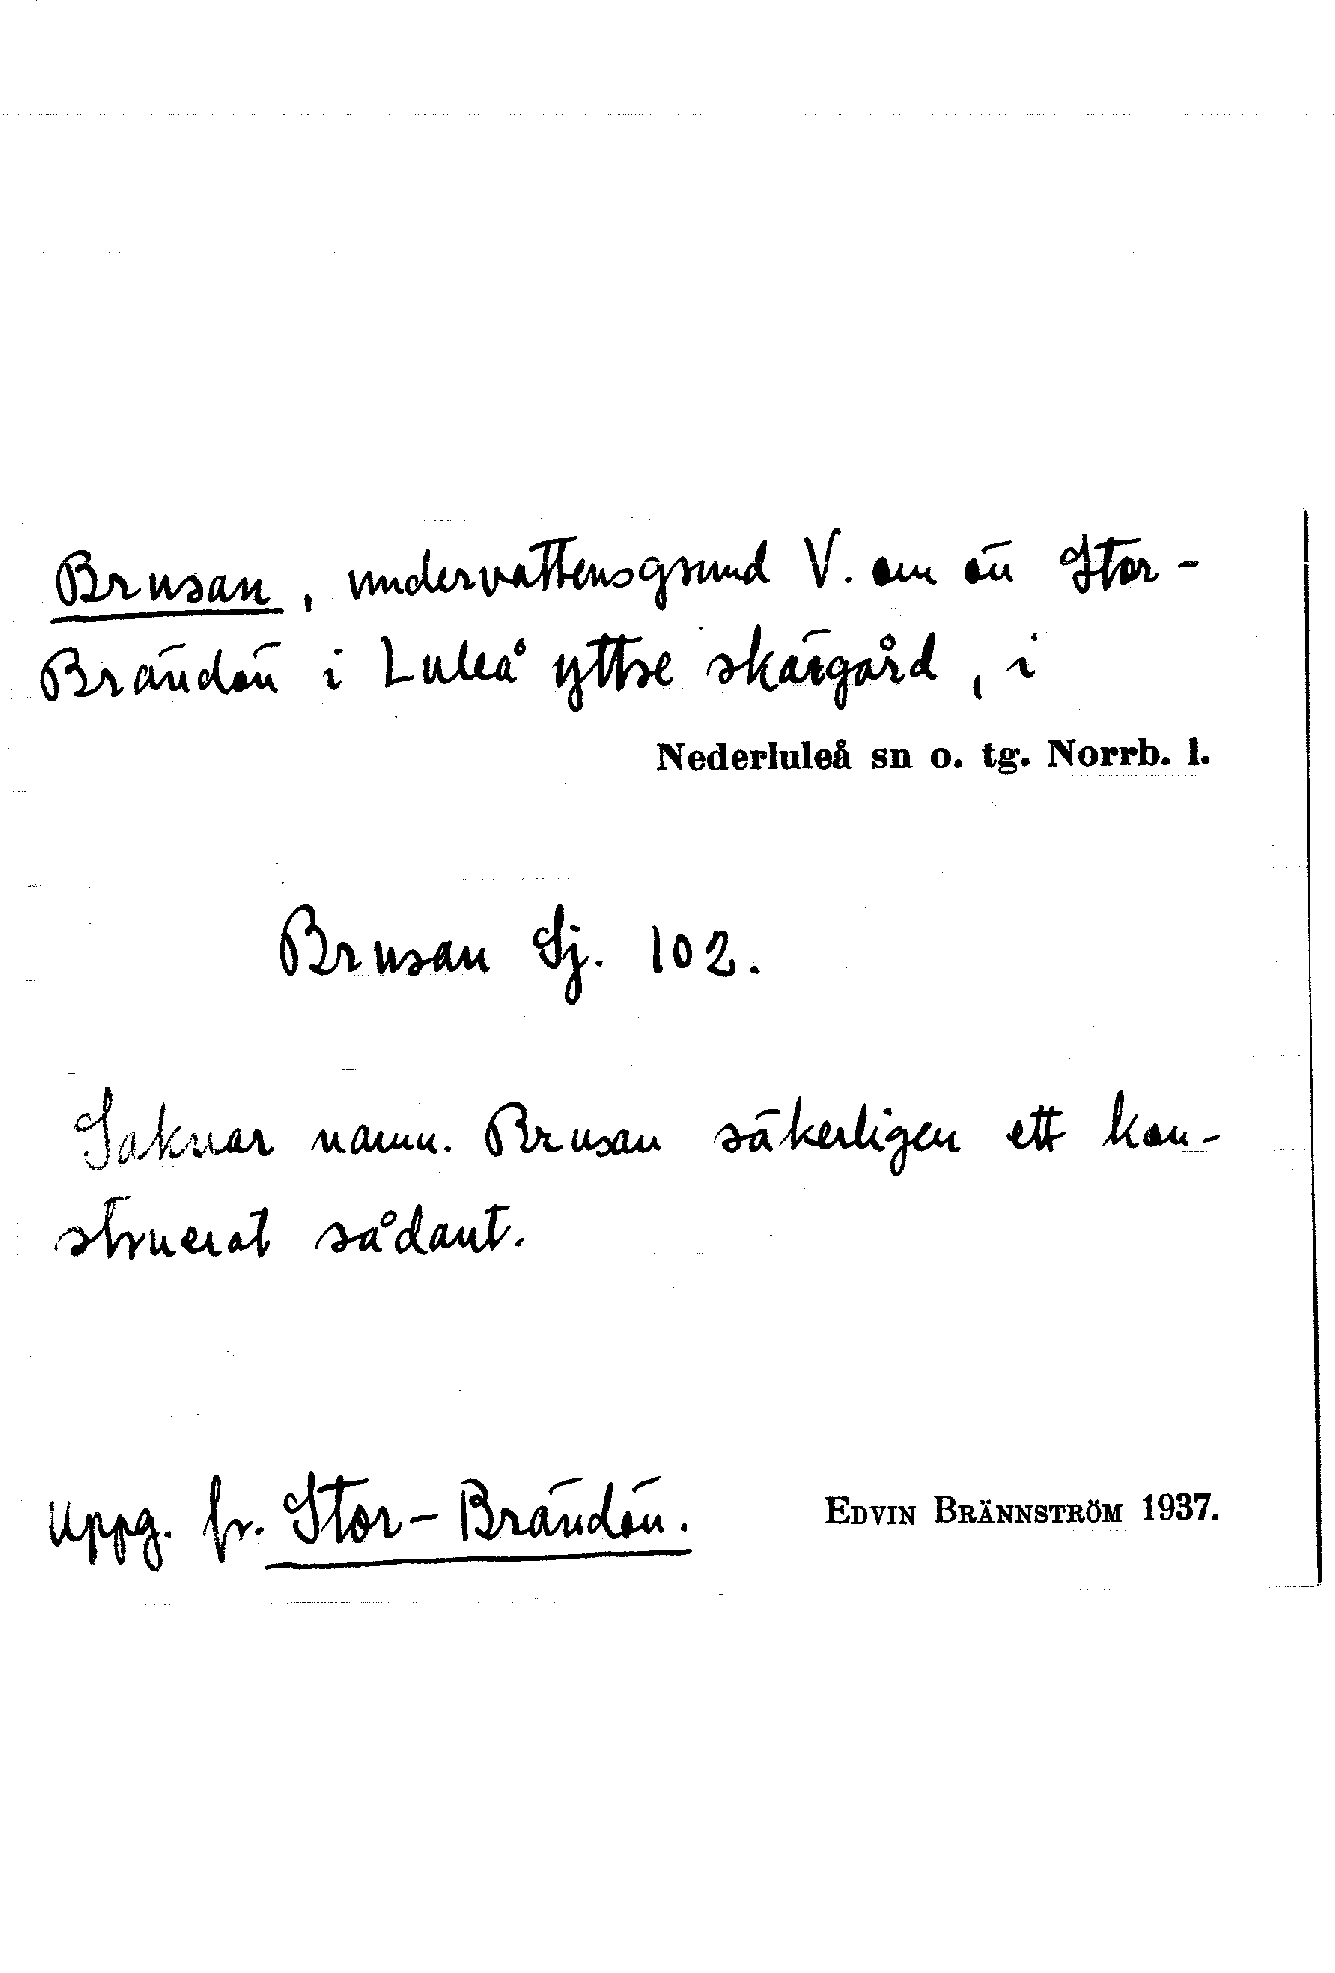 Brusan, undervattensgrund V. om ön Stor-
Brändön i Luleå yttre skärgård, i
Nederluleå sn o. tg. Norrb. l.
Brusan Sj. 102.
Saknar namn. Brusan säkerligen ett kon-
struerat sådant.
Uppg. fr. Stor-Brändön.
EDVIN BRÄNNSTRÖM 1937.